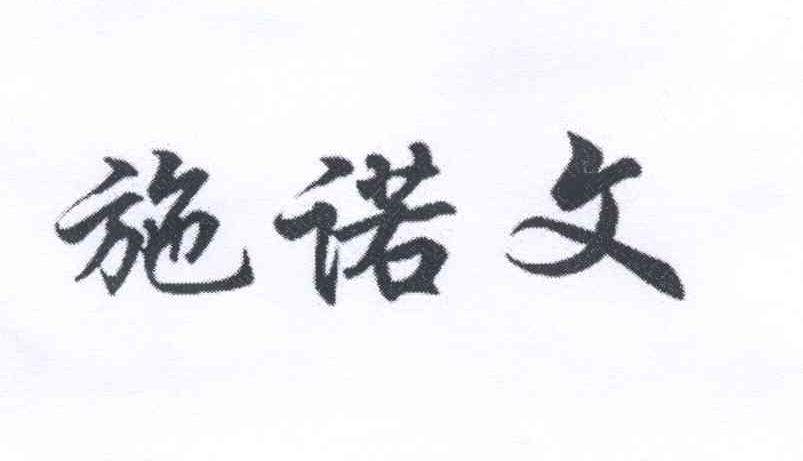 施诺文